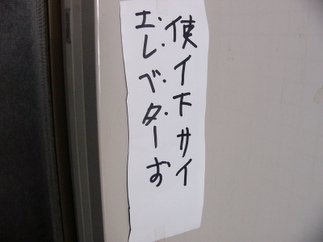 エレベダーお
使イ下サイ